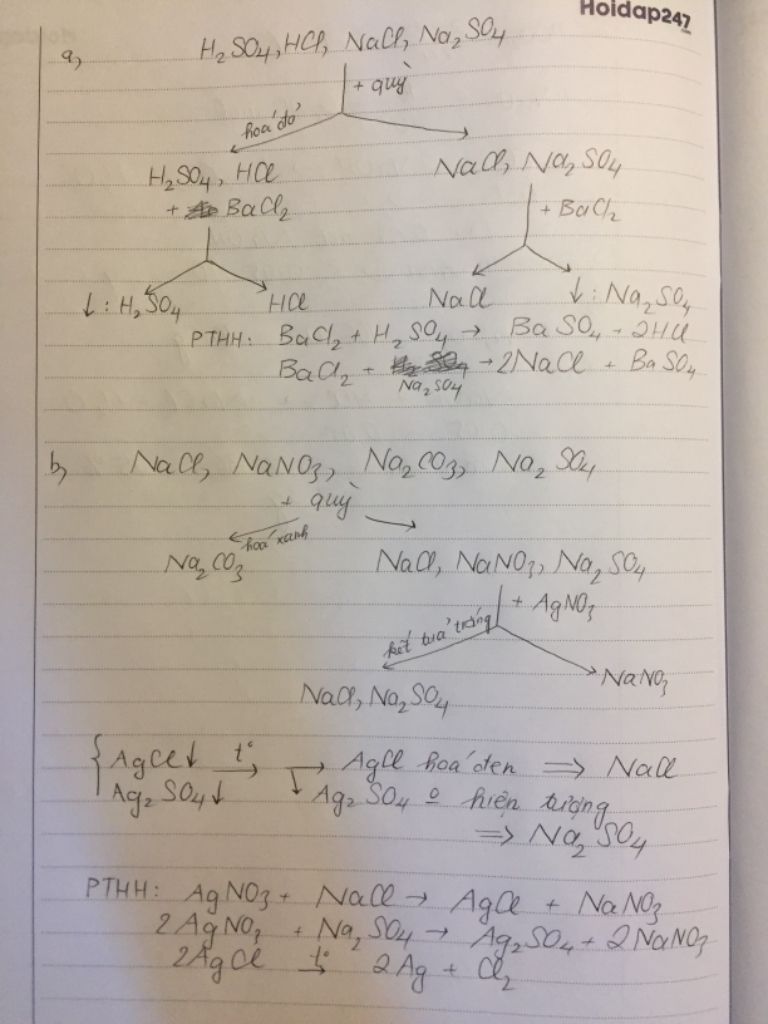 Hoidap247
a, H₂SO₄, HCl, NaCl, Na₂SO₄
+ quỳ
hoá đỏ
H₂SO₄, HCl NaCl, Na₂SO₄
+ BaCl₂ + BaCl₂
↓ : H₂SO₄ HCl NaCl ↓ : Na₂SO₄
PTHH: BaCl₂ + H₂SO₄ → BaSO₄ + 2HCl
BaCl₂ + Na₂SO₄ → 2NaCl + BaSO₄
b, NaCl, NaNO₃, Na₂CO₃, Na₂SO₄
+ quỳ
hoá xanh
Na₂CO₃ NaCl, NaNO₃, Na₂SO₄
+ AgNO₃
kết tuả trắng
NaCl, Na₂SO₄ NaNO₃
{ AgCl↓ t° → → AgCl hoá đen ⇒ NaCl
Ag₂SO₄↓ ↳ Ag₂SO₄ o hiện tượng
⇒ Na₂SO₄
PTHH: AgNO₃ + NaCl → AgCl + NaNO₃
2AgNO₃ + Na₂SO₄ → Ag₂SO₄ + 2NaNO₃
2AgCl t° → 2Ag + Cl₂